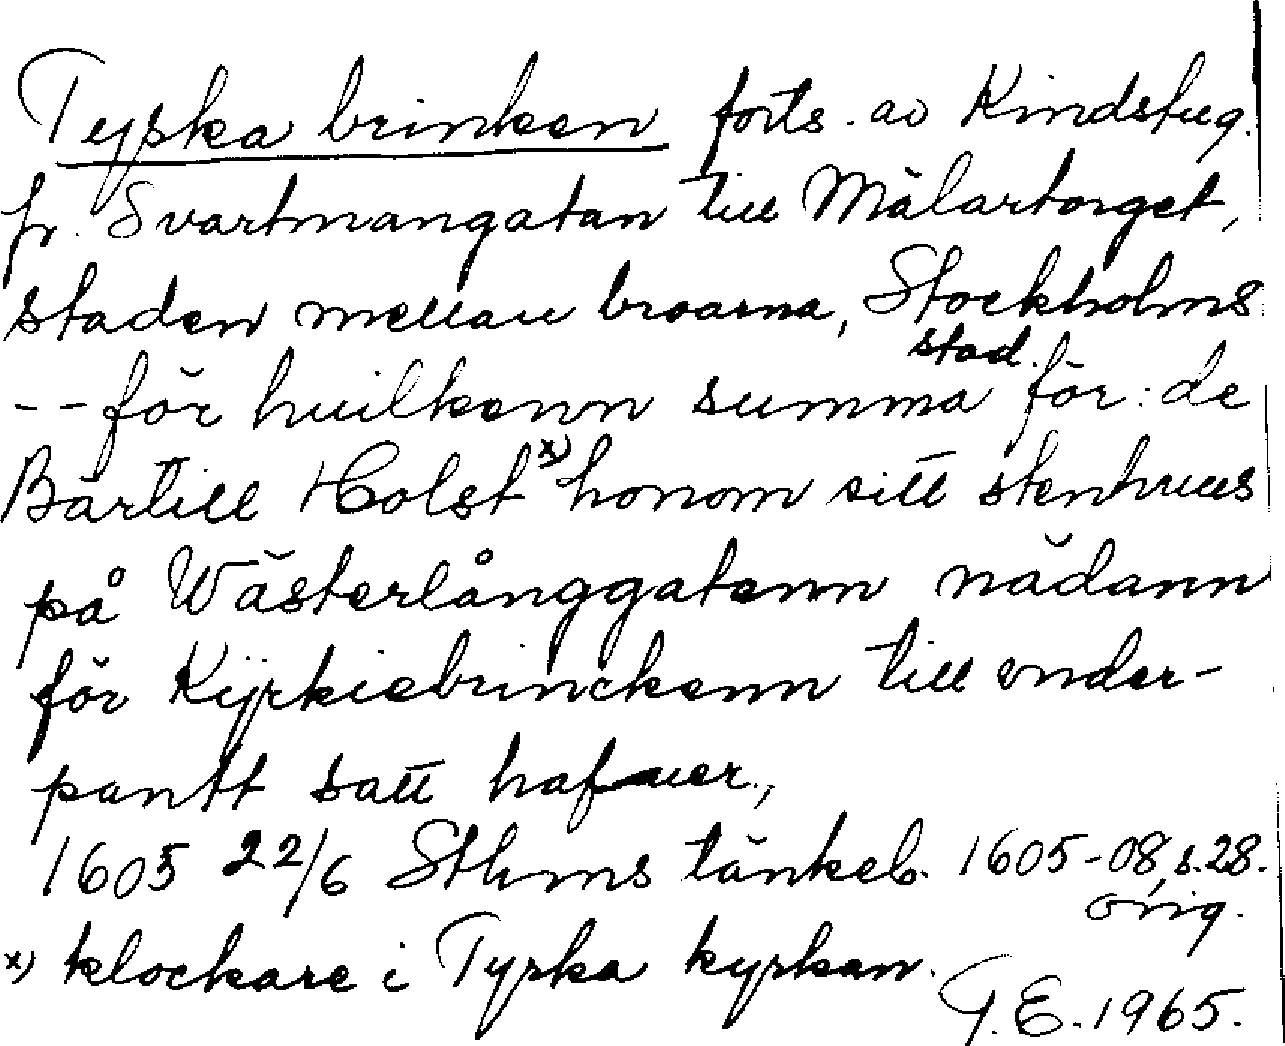 Tyska brinken forts. av Kindstug.
fr. Svartmangatan till Mälartorget,
staden mellan broarna, Stockholms
stad.
-- för huilkenn summa för:de
Bärtill Holst x) honom sitt stenhuus
på Wästerlånggatenn nädann
för Kyrkiebrinckenn till vnder-
pantt satt hafuer.,
1605 22/6 Sthms tänkeb. 1605-08, s. 28.
orig.
x) klockare i Tyska kyrkan.
G.E. 1965.